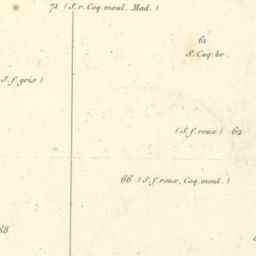 71 (S. r. Coq. moul. Mad.)
61
S. Coq. br.
S. f. gris)
(S. f. roux) 62
66 (S. f. roux, Coq. moul.)
68